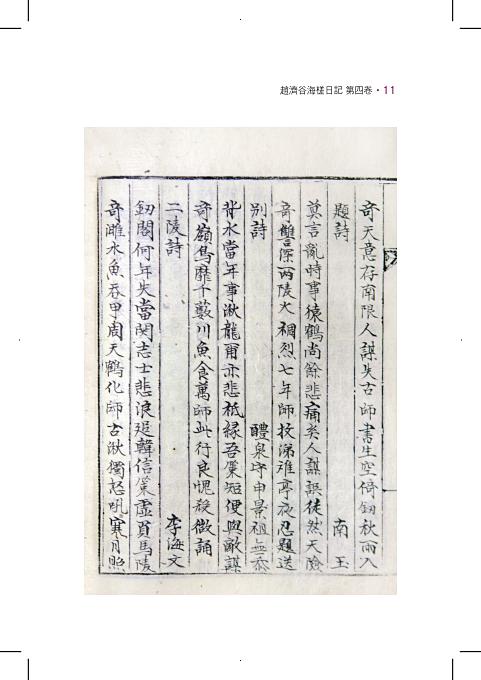 趙濟谷海槎日記 第四卷 · 11
奇天意存南限人謀失古師書生空倚釰秋雨入
題詩 南玉
莫言亂時事猿鶴尚餘悲痛矣人謀誤徒然天險
奇讐深兩陵火 烈七年師 涕難亭夜忍題送
別詩 醴泉守申景祖
背水當年事湫龍爾亦悲祗緣吾 短便與敵謀
奇嶺鳥靡千 川魚食萬師此行良愧 誦
二陵詩 李海文
釰閣何年失當関志士悲浪 韓信 虛負馬陵
奇雎水魚吞甲周天鶴化師古湫獨怒吼寒月照